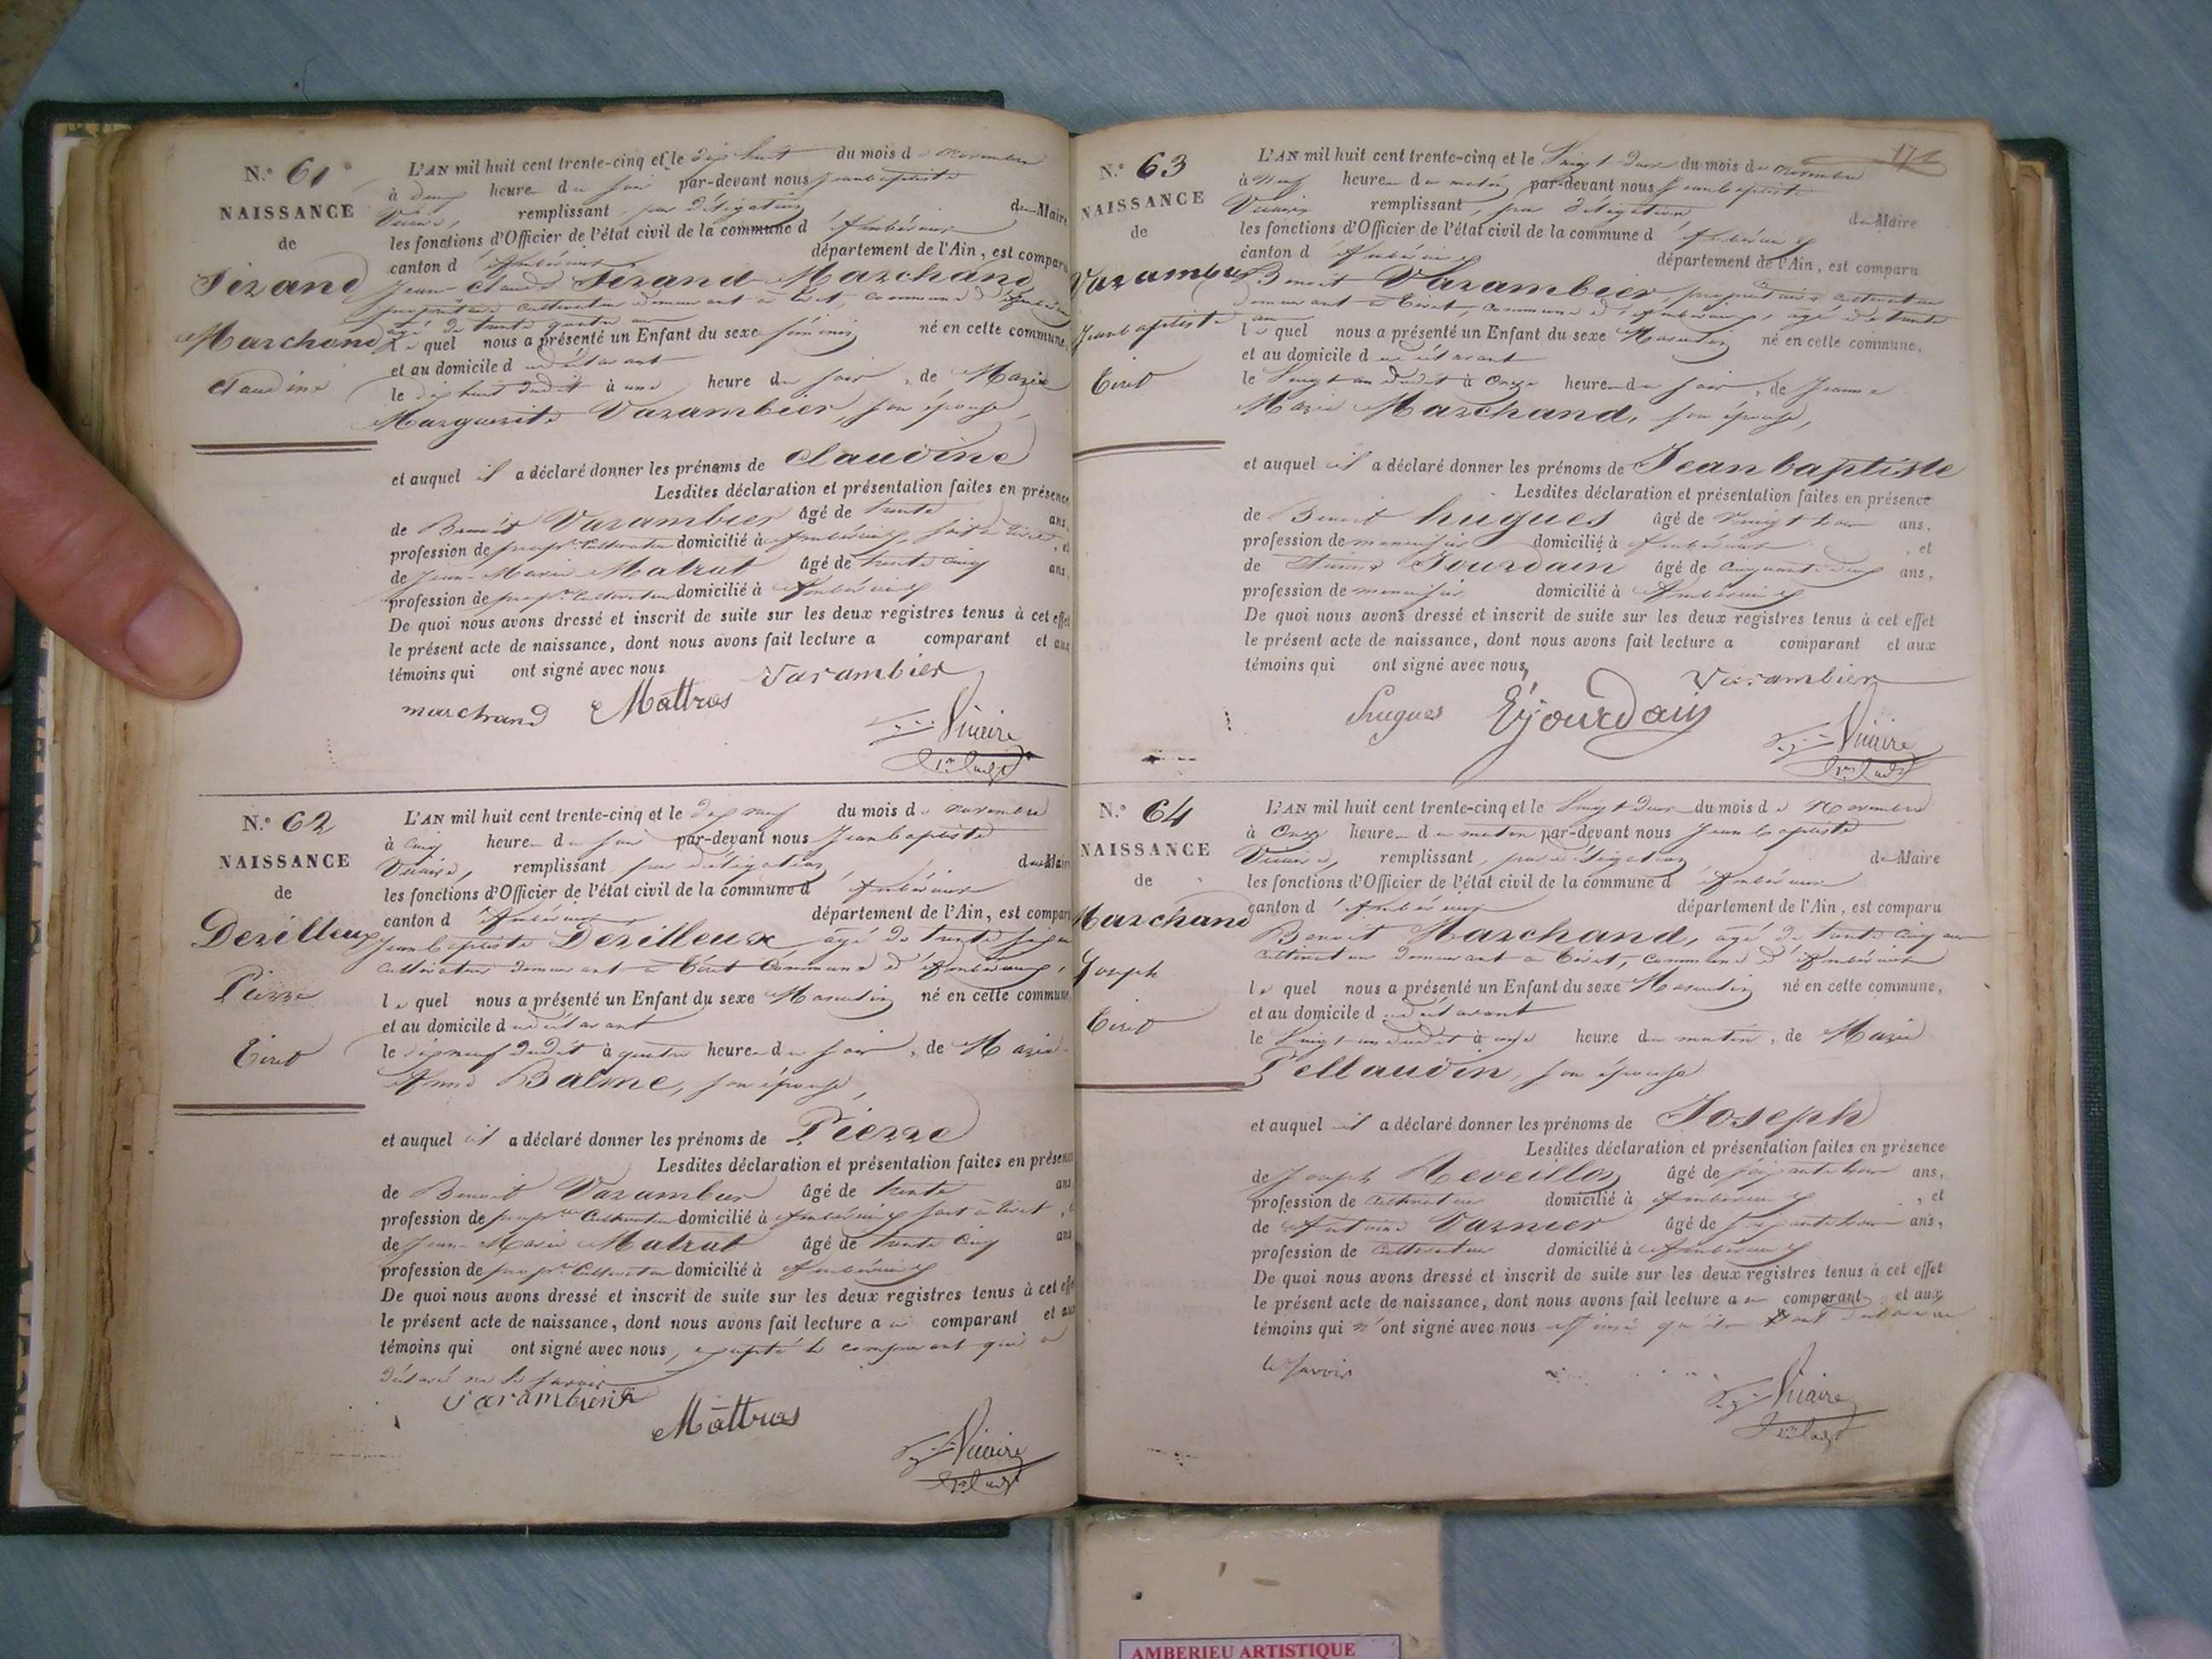 N.° 61
NAISSANCE
de
Sérand
Marchand
Claudine
L'AN mil huit cent trente-cinq et le dix huit du mois de novembre
à deux heures du soir par-devant nous Jeanbaptiste
Vicaire, remplissant par délégation du Maire
les fonctions d'Officier de l'état civil de la commune d'Ambérieux
canton d'Ambérieux département de l'Ain, est comparu
Jean-Claude Sérand Marchand
propriétaire cultivateur demeurant à Tiret commune d'Ambérieux
âgé de trente quatre ans
lequel nous a présenté un Enfant du sexe féminin né en cette commune,
et au domicile du déclarant
le dix huit dudit à une heure du soir, de Marie
Marguerite Varambier, son épouse,
et auquel il a déclaré donner les prénoms de Claudine
Lesdites déclaration et présentation faites en présence
de Benoît Varambier âgé de trente ans,
profession de prop.re Cultivateur domicilié à Ambérieux, soit à Tiret, et
de Jean-Marie Matrat âgé de trente cinq ans,
profession de prop.re Cultivateur domicilié à Ambérieux
De quoi nous avons dressé et inscrit de suite sur les deux registres tenus à cet effet
le présent acte de naissance, dont nous avons fait lecture a comparant et aux
témoins qui ont signé avec nous
Varambier
marchand Mattras
Vicaire
N.° 62
NAISSANCE
de
Derilleux
Pierre
Tiret
L'AN mil huit cent trente-cinq et le dix neuf du mois de novembre
à cinq heures du soir par-devant nous Jeanbaptiste
Vicaire, remplissant par délégation du Maire
les fonctions d'Officier de l'état civil de la commune d'Ambérieux
canton d'Ambérieux département de l'Ain, est comparu
Jeanbaptiste Derilleux âgé de trente six ans
cultivateur demeurant à Tiret Commune d'Ambérieux,
lequel nous a présenté un Enfant du sexe Masculin né en cette commune
et au domicile du déclarant
le dix neuf dudit à quatre heures du soir, de Marie
Anne Balme, son épouse,
et auquel il a déclaré donner les prénoms de Pierre
Lesdites déclaration et présentation faites en présence
de Benoit Varambier âgé de trente ans
profession de prop.re Cultivateur domicilié à Ambérieux soit à Tiret,
de Jean-Marie Matrat âgé de trente cinq ans
profession de prop.re Cultivateur domicilié à Ambérieux
De quoi nous avons dressé et inscrit de suite sur les deux registres tenus à cet effet
le présent acte de naissance, dont nous avons fait lecture a comparant et aux
témoins qui ont signé avec nous, excepté le comparant qui a
déclaré ne le savoir
Varambier
Mattras
Vicaire
N.° 63
NAISSANCE
de
Varambier
Jeanbaptiste
Tiret
L'AN mil huit cent trente-cinq et le Vingt deux du mois de novembre
à neuf heures du matin par-devant nous Jeanbaptiste
Vicaire remplissant, par délégation du Maire
les fonctions d'Officier de l'état civil de la commune d'Ambérieux
canton d'Ambérieux département de l'Ain, est comparu
Benoit Varambier, propriétaire cultivateur
demeurant à Tiret, commune d'Ambérieux, âgé de trente
ans lequel nous a présenté un Enfant du sexe Masculin né en cette commune,
et au domicile du déclarant
le Vingt un dudit à onze heures du soir, de Jeanne
Marie Marchand, son épouse,
et auquel il a déclaré donner les prénoms de Jeanbaptiste
Lesdites déclaration et présentation faites en présence
de Benoit hugues âgé de Vingt trois ans,
profession de menuisier domicilié à Ambérieux, et
de Jourdain âgé de cinquante deux ans,
profession de menuisier domicilié à Ambérieux
De quoi nous avons dressé et inscrit de suite sur les deux registres tenus à cet effet
le présent acte de naissance, dont nous avons fait lecture a comparant et aux
témoins qui ont signé avec nous,
Varambier
hugues Ejourdain
Vicaire
N.° 64
NAISSANCE
de
Marchand
Joseph
Tiret
L'AN mil huit cent trente-cinq et le Vingt deux du mois de Novembre
à onze heures du matin par-devant nous Jeanbaptiste
Vicaire, remplissant par délégation du Maire
les fonctions d'Officier de l'état civil de la commune d'Ambérieux
canton d'Ambérieux département de l'Ain, est comparu
Benoit Marchand, âgé de trente cinq ans
cultivateur demeurant à Tiret, commune d'Ambérieux
lequel nous a présenté un Enfant du sexe Masculin né en cette commune,
et au domicile du déclarant
le Vingt un dudit à onze heure du matin, de Marie
Pellaudin, son épouse
et auquel il a déclaré donner les prénoms de Joseph
Lesdites déclaration et présentation faites en présence
de Joseph Reveillon âgé de soixante trois ans,
profession de cultivateur domicilié à Ambérieux, et
de Antoine Varnier âgé de soixante trois ans,
profession de cultivateur domicilié à Ambérieux
De quoi nous avons dressé et inscrit de suite sur les deux registres tenus à cet effet
le présent acte de naissance, dont nous avons fait lecture au comparant et aux
témoins qui n'ont signé avec nous
le savoir
Vicaire
AMBERIEU ARTISTIQUE